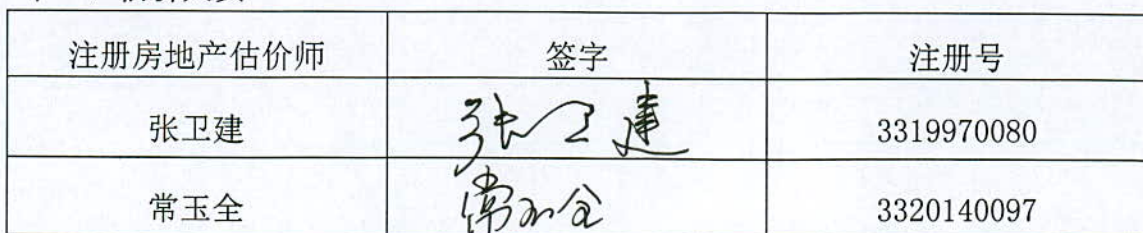 注册房地产估价师 签字 注册号
张卫建 张卫建 3319970080
常玉全 常玉全 3320140097